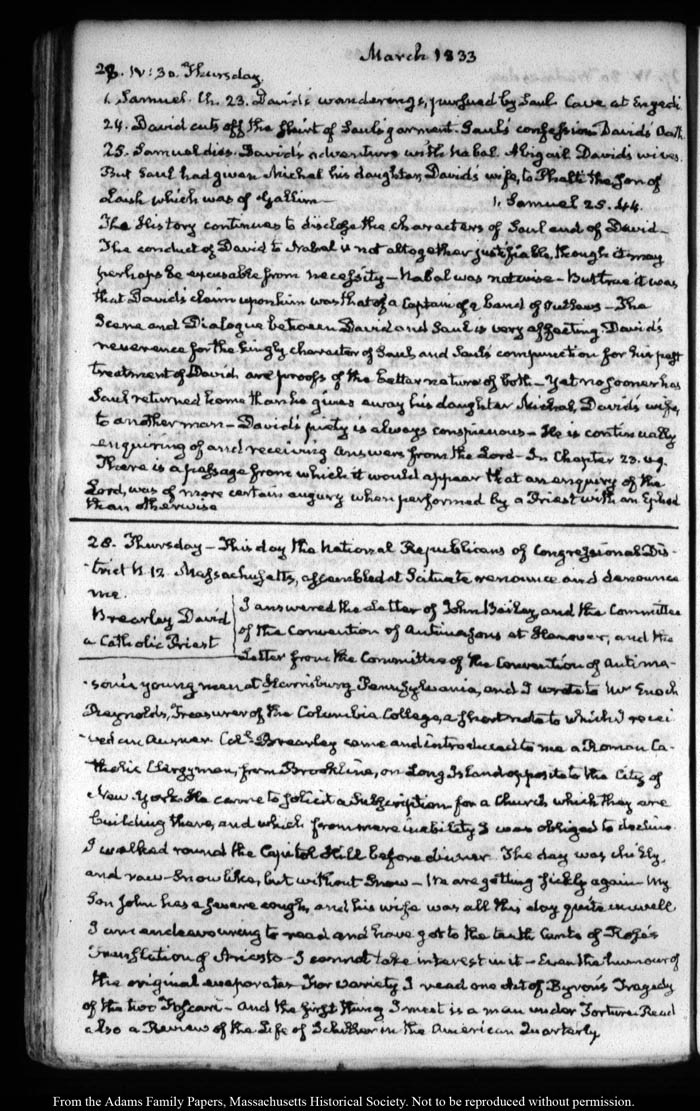 March 1833
28. IV:30. Thursday.
1. Samuel. Ch. 23. David's wanderings, pursued by Saul. Cave at Engedi
24. David cuts off the skirt of Saul's garment. Saul's confession David's Oath.
25. Samuel dies. David's adventure with Nabal. Abigail David's wives.
But Saul had given Michal his daughter, David's wife, to Phalti the Son of
Laish which was of Gallim— 1. Samuel 25. 44.
The History continues to disclose the characters of Saul and of David—
The conduct of David to Nabal is not altogether justifiable, though it may
perhaps be excusable from necessity— Nabal was not wise— But true it was
that David's claim upon him was that of a Captain of a band of Outlaws— The
Scene and Dialogue between David and Saul is very affecting David's
reverence for the kingly character of Saul, and Saul's compunction for his past
treatment of David are proofs of the better nature of both— Yet no sooner has
Saul returned home than he gives away his daughter Michal, David's wife,
to another man— David's piety is always conspicuous— He is continually
enquiring of and receiving answers from the Lord— In Chapter 23. v. 9.
There is a passage from which it would appear that an enquiry of the
Lord, was of more certain augury when performed by a Priest with an Ephod
than otherwise
28. Thursday— This day the National Republicans of Congressional Dis-
-trict N. 12. Massachusetts, assembled at Scituate renounce and denounce
me.
Brearley David
a Catholic Priest
I answered the Letter of John Bailey, and the Committee
of the Convention of Antimasons at Hanover, and the
Letter from the Committee of the Convention of Antima-
-sonic young men at Harrisburg Pennsylvania, and I wrote to Mr Enoch
Reynolds, Treasurer of the Columbia College, a short note to which I recei
-ved an Answer. Coll. Brearley came and introduced to me a Roman Ca-
-tholic Clergyman, from Brookline, on Long Island opposite to the City of
New-York. He came to solicit a Subscription for a Church which they are
building there, and which from mere inability I was obliged to decline.
I walked round the Capitol Hill before dinner. The day was chilly,
and raw— Snow like, but without Snow— We are getting sickly again— My
Son John has a severe cough, and his wife was all this day quite unwell
I am endeavouring to read and have got to the tenth Canto of Rose's
translation of Ariosto— I cannot take interest in it— Even the humour of
the original evaporates. For variety I read one Act of Byron's Tragedy
of the two Foscari— and the first thing I meet is a man under Torture. Read
also a Review of the Life of Schiller in the American Quarterly
From the Adams Family Papers, Massachusetts Historical Society. Not to be reproduced without permission.